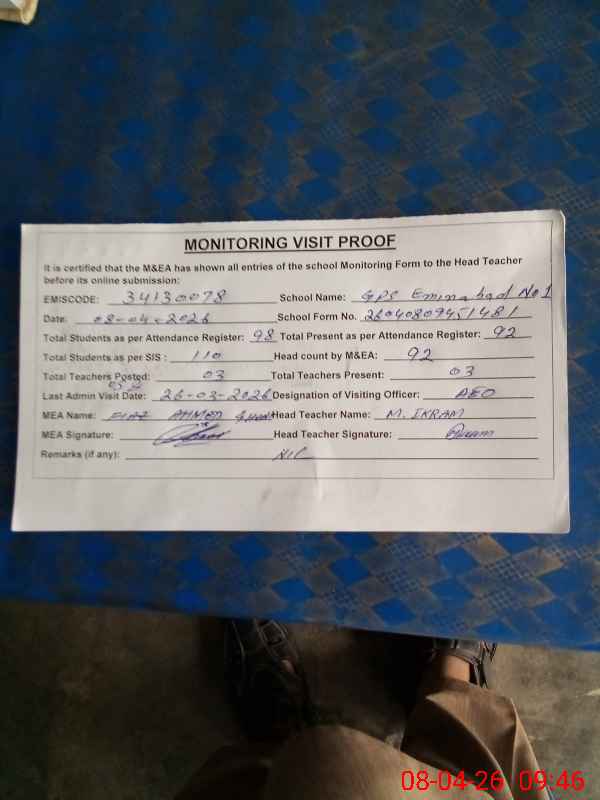 MONITORING VISIT PROOF
It is certified that the M&EA has shown all entries of the school Monitoring Form to the Head Teacher
before its online submission:
EMISCODE: 34130078 School Name: GPS Eminabad No 1
Date: 08-04-2026 School Form No. 26040809451481
Total Students as per Attendance Register: 98 Total Present as per Attendance Register: 92
Total Students as per SIS : 110 Head count by M&EA: 92
Total Teachers Posted: 03 Total Teachers Present: 03
Last Admin Visit Date: 26-03-2026 Designation of Visiting Officer: AEO
MEA Name: AHMED Head Teacher Name: M. IKRAM
MEA Signature: Head Teacher Signature: Ikram
Remarks (if any): NIL
08-04-26 09:46